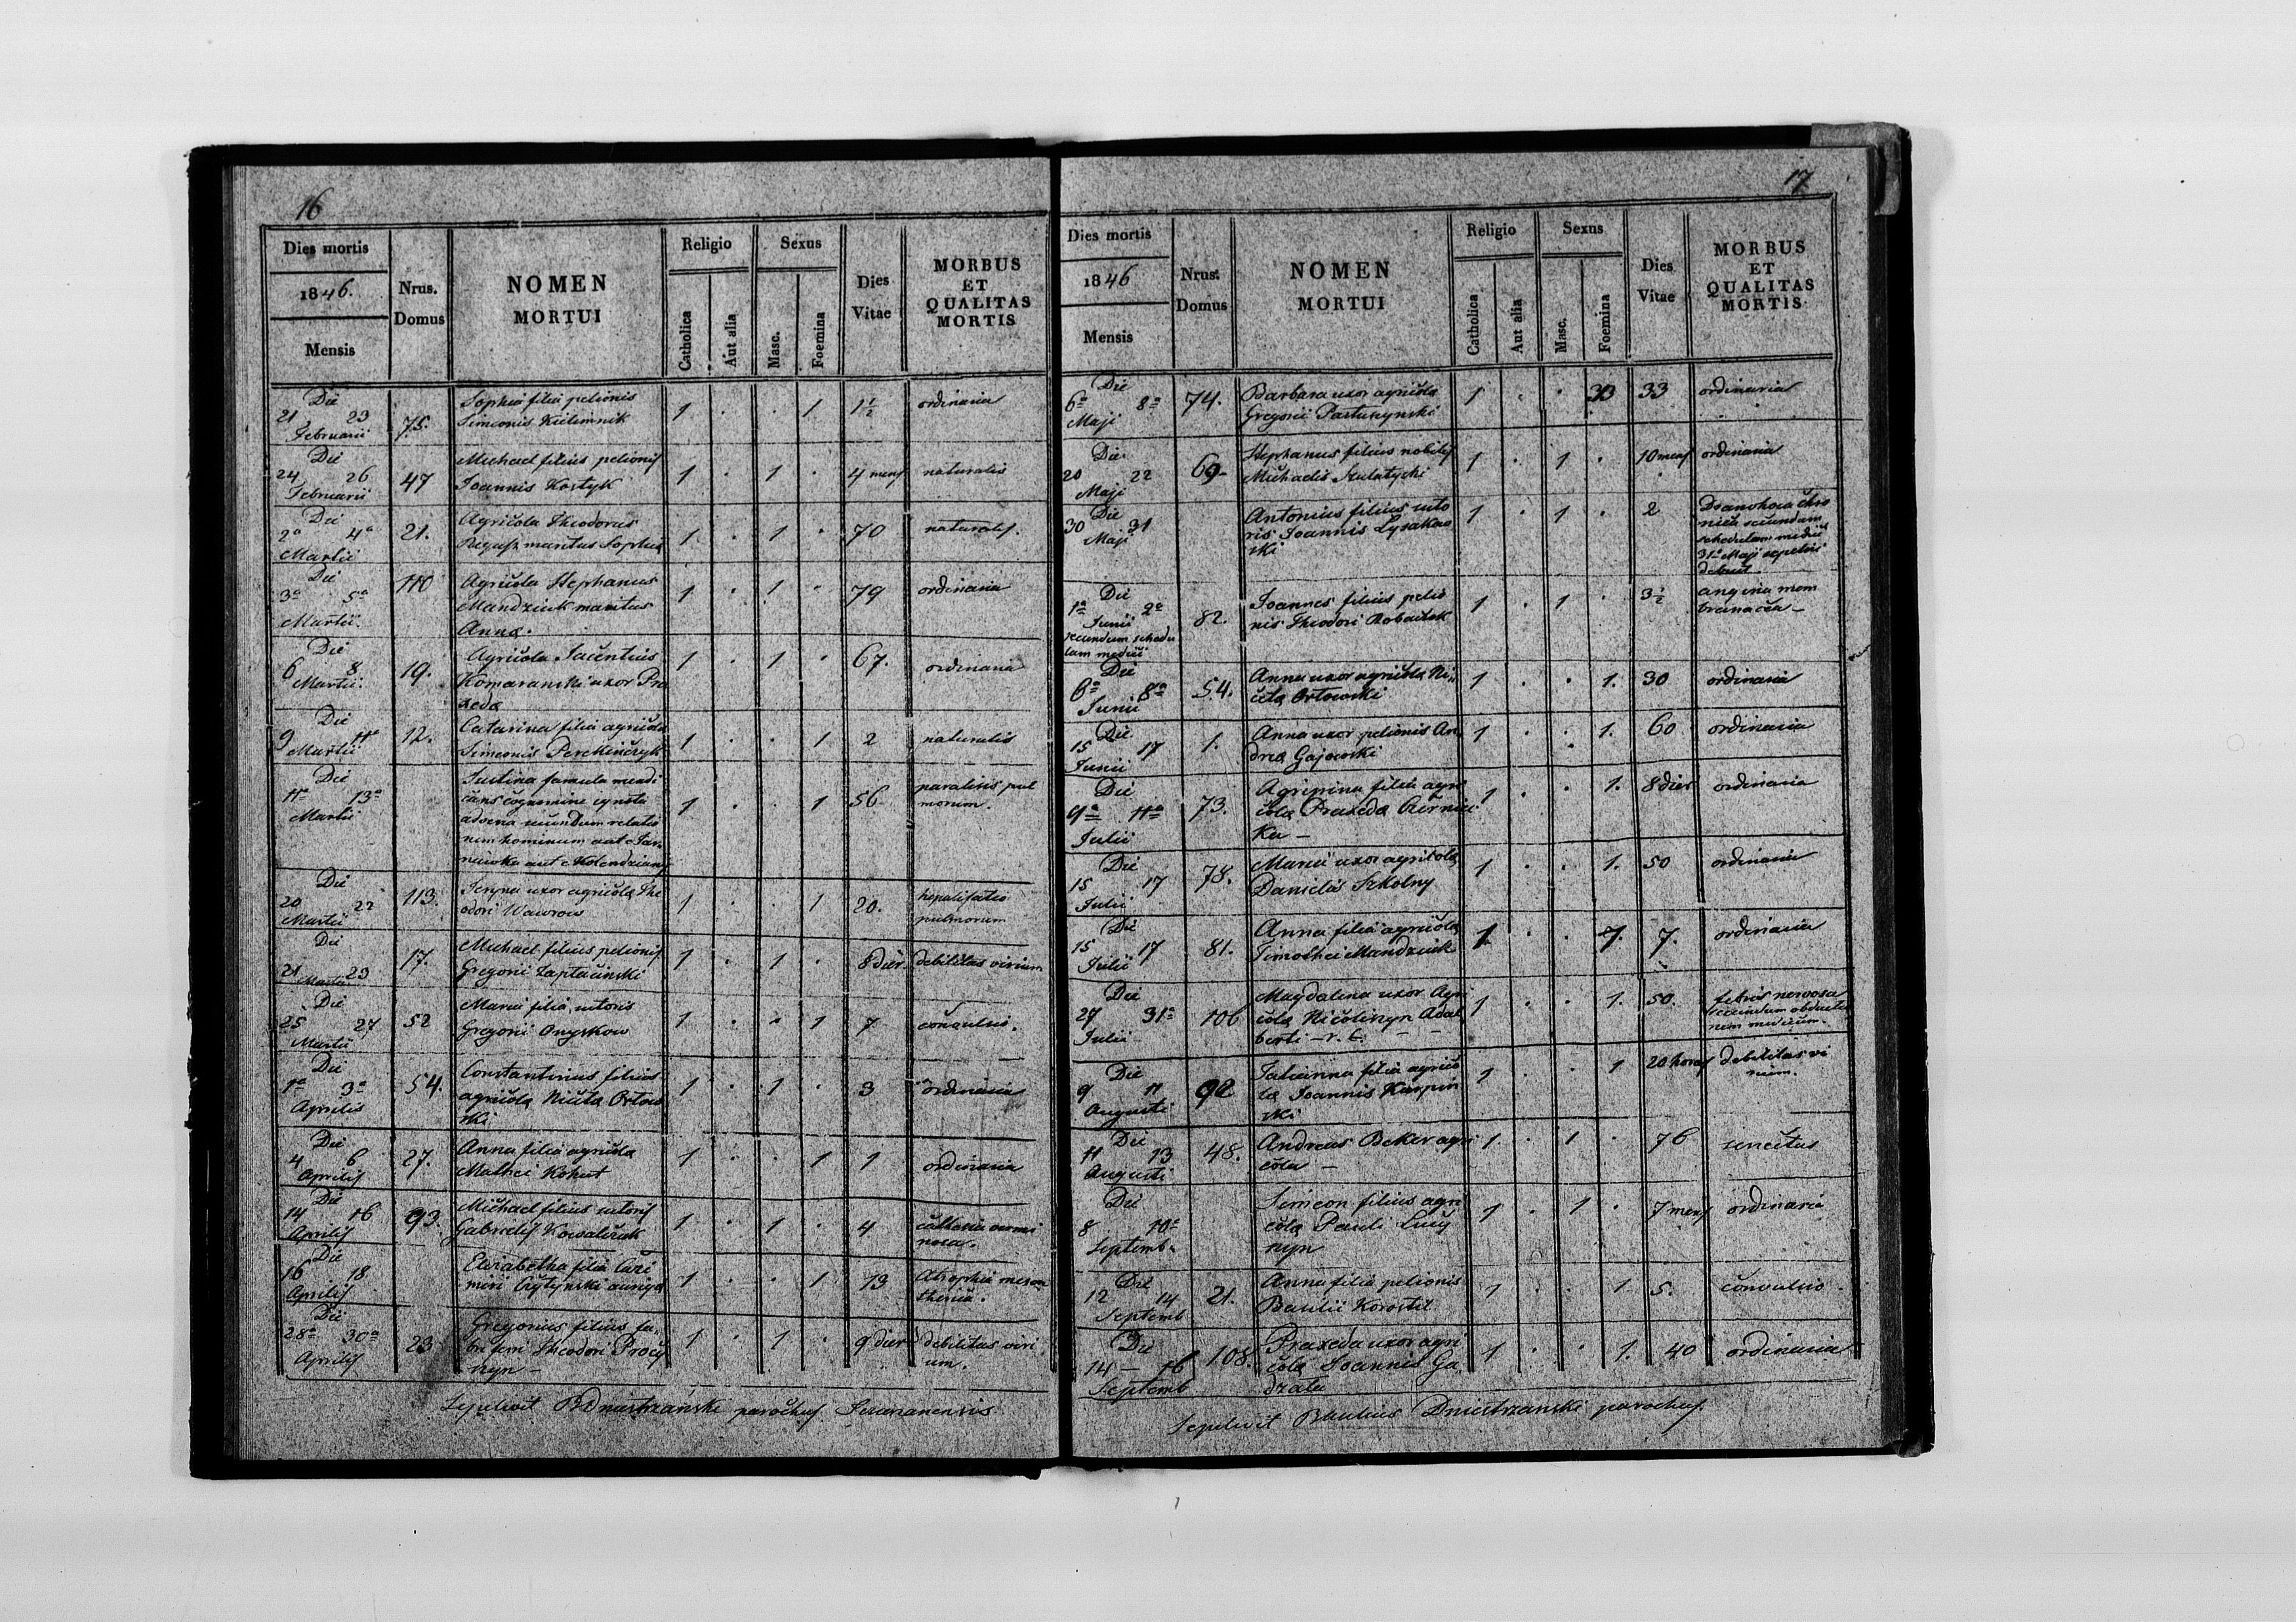 16
Dies mortis
1846.
Mensis
Nrus.
Domus
NOMEN
MORTUI
Religio
Catholica
Aut alia
Sexus
Masc.
Foemina
Dies
Vitae
MORBUS
ET
QUALITAS
MORTIS
Die
21 23
Februarii
75.
Sophia filia pelionis
Simeonis Kielimnik
1 . . 1
1 1/2
ordinaria
Die
24 26
Februarii
47
Michael filius pelionis
Joannis Kostyk
1 . 1 .
4 mens
naturalis
Die
2a 4a
Martii
21.
Agricola Theodorus
maritus Sophia
1 . 1 .
70
naturalis.
Die
3a 5a
Martii.
110
Agricola Stephanus
Mandziuk maritus
Anna.
1 . 1 .
79
ordinaria
Die
6 8
Martii.
19.
Agricola Jacentius
Komaranski uxor Pra
xeda
1 . 1 .
67.
ordinaria
Die
9 11a
Martii
12.
Catarina filia agricola
Simeonis
1 . . 1
2
naturalis
Die
11a 13a
Martii
Justina famula mendi
cans cognomine
advena secundum relatio
nem hominum aut
aut
1 . . 1
56
paralisis pul
morum.
Die
20 22
Martii
113.
uxor agricola The
odori Wawrow
1 . . 1
20.
hepatisatio
pulmorum
Die
21 23
Martii
17.
Michael filius pelionis
Gregorii Laptacinski
1 . 1 .
8 dier.
debilitas virium
Die
25 27
Martii
52
Maria filia sutoris
Gregorii Onyskow
1 . . 1
7
convulsio.
Die
1a 3a
Aprilis
54.
Constantinus filius
agricola Nicita Ortow
ski
1 . 1 .
3
ordinaria
Die
4 6
Aprilis
27.
Anna filia agricola
Mathei Kohut
1 . . 1
1
ordinaria
Die
14 16
Aprilis
93.
Michael filius sutoris
Gabrielis Kowalczuk
1 . 1 .
4
vermi
nosa.
Die
16 18
Aprilis
Elisabetha filia Casi
miri auriga
1 . . 1
13
Atrophia mesen
therica.
Die
28a 30a
Aprilis
23
Gregorius filius fa
bri ferri Theodori Procy
hyn —
1 . 1 .
9 dier
debilitas viri
um.
Sepelivit B Dniestrzański parochus
17
Dies mortis
1846
Mensis
Nrus.
Domus
NOMEN
MORTUI
Religio
Catholica
Aut alia
Sexus
Masc.
Foemina
Dies
Vitae
MORBUS
ET
QUALITAS
MORTIS
Die
6a 8a
Maji
74.
Barbara uxor agricola
Gregorii
1 . .
33
ordinaria
Die
20 22
Maji
69
Stephanus filius nobilis
Michaelis Szulatycki
1 . 1 .
10 mens
ordinaria
Die
30 31
Maji
Antonius filius suto
ris Joannis Lysakow
ski
1 . 1 .
2
chro
nica secundum
schedulam medici
31a Maji sepeliri
debuit
Die
1a 2a
Junii
secundum schedu
lam medici
82.
Joannes filius pelio
nis Theodori Robaczek
1 . 1 .
3 1/2
angina mem
branacea —
Die
6a 8a
Junii
54.
Anna uxor agricola Ni
ceta Ortowski
1 . . 1.
30
ordinaria
Die
15 17
Junii
1.
Anna uxor pelionis An
drea Gajowski
1 . . 1.
60
ordinaria
Die
9a 11a
Julii
73.
Agripina filia agri
cola Praxeda Czornic
ka —
1 . . 1.
8 dier
ordinaria
Die
15 17
Julii
78.
Maria uxor agricola
Danielis Szkolny
1 . . 1.
50
ordinaria
Die
15 17
Julii
81.
Anna filia agricola
Timothei Mandziuk
1 . . 1.
7.
ordinaria
Die
27 31a
Julii
106
Magdalena uxor Agri
cola Nicolinyn Adal
berti — r. l.
1 . . 1.
50.
febris nervosa
secundum obductio
nem medicum.
Die
9 11
Augusti
92
Tatianna filia agrico
la Joannis Karpin
ski
1 . . 1
20 horas
debilitas vi
rium.
Die
11 13
Augusti
48.
Andreas Beker agri
cola —
1. . 1 .
76
senectus
Die
8 10a
Septemb.
Simeon filius agri
cola Pauli Lucy
nyn
1 . 1 .
7 mens
ordinaria
Die
12 14
Septemb
21.
Anna filia pelionis
Basilii Korostil
1 . . 1
5.
convulsio
Die
14 — 16
Septemb
108.
Praxeda uxor agri
cola Joannis Ga
dzala
1 . . 1.
40
ordinaria
Sepelivit Basilius Dniestrzanski parochus.